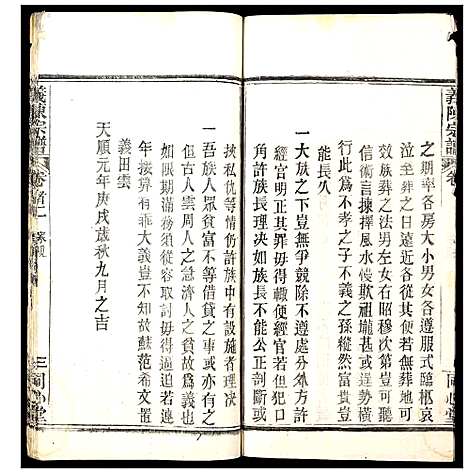 義陳宗譜
卷
同心堂
之期率各房大小男女各遵服式臨柩哀
泣至葬之日遠近各從其便若無葬地可
效族葬之法男左女右昭穆次第豈可聽
信術言揀擇風水侵欺祖壠甚或恃勢橫
角許族長以不孝子不義之孫縱然何辭
一大族之下豈無爭競除不遵勸諭外方許
經官明正其罪毋得輙便經官若犯不公
許族長糾族正如族長不能公正只許別
能長久
挾私仇等情仿許族中有設施者理决
一吾族人眾貧富不等借貸之事或亦有之
然富者當濟人之貧貧者不可負人為義也
古人雲周人之急濟人之貧此之謂也
如限期滿務須從容取討毋得逼迫若是
年接算有乖大義豈不知蘇范希文置
義田雲
天順元年庚戌歲秋九月之吉
義陳宗譜
卷首一
家規
三
同心堂